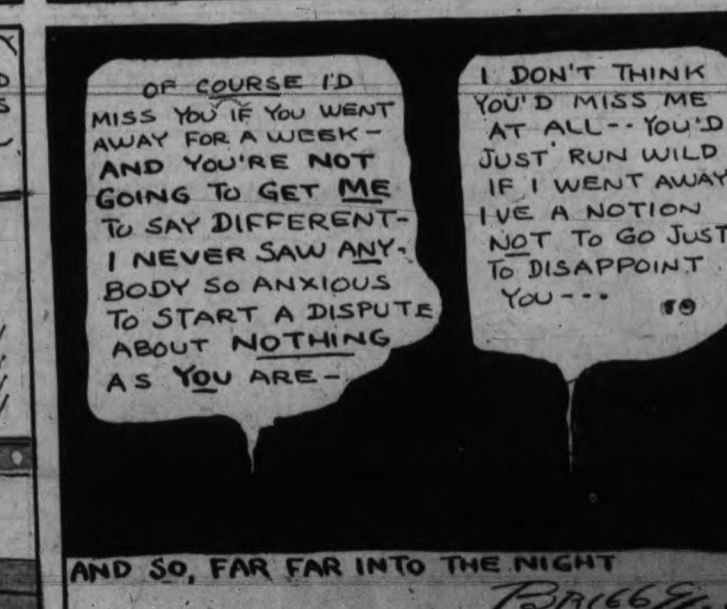 OF COURSE I'D
MISS YOU IF YOU WENT
AWAY FOR A WEEK-
AND YOU'RE NOT
GOING TO GET ME
TO SAY DIFFERENT-
I NEVER SAW ANY-
BODY SO ANXIOUS
TO START A DISPUTE
ABOUT NOTHING
AS YOU ARE-
I DON'T THINK
YOU'D MISS ME
AT ALL-- YOU'D
JUST RUN WILD
IF I WENT AWAY
I'VE A NOTION
NOT TO GO JUST
TO DISAPPOINT
YOU---
AND SO, FAR FAR INTO THE NIGHT
BRIGGS